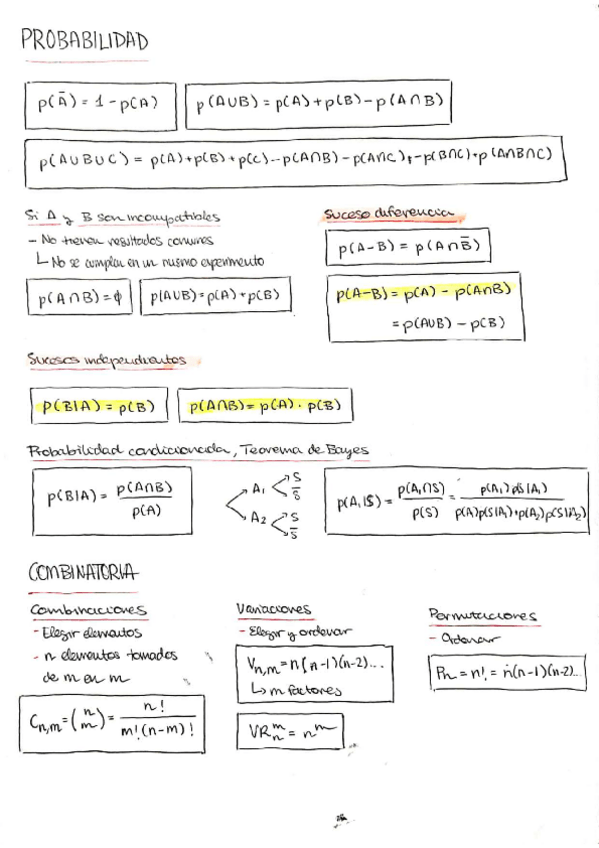 PROBABILIDAD
p(Ā) = 1 - p(A)
p(A∪B) = p(A) + p(B) - p(A∩B)
p(A∪B∪C) = p(A) + p(B) + p(C) - p(A∩B) - p(A∩C) - p(B∩C) + p(A∩B∩C)
Si A y B son incompatibles
- No tienen resultados comunes
↳ No se cumplen en un mismo experimento
p(A∩B) = ϕ
p(A∪B) = p(A) + p(B)
Suceso diferencia
p(A-B) = p(A∩B̄)
p(A-B) = p(A) - p(A∩B)
= p(A∪B) - p(B)
Sucesos independientes
P(B|A) = p(B)
p(A∩B) = p(A) · p(B)
Probabilidad condicionada, Teorema de Bayes
p(B|A) = p(A∩B) / p(A)
A₁ S
S̄
A₂ S
S̄
p(A₁|S) = p(A₁∩S) / p(S) = p(A₁) p(S|A₁) / p(A)p(S|A₁)+p(A₂)p(S|A₂)
COMBINATORIA
Combinaciones
- Elegir elementos
- n elementos tomados
de m en m
Cn,m = (n m) = n! / m!(n-m)!
Variaciones
- Elegir y ordenar
Vn,m = n(n-1)(n-2)...
↳ m factores
VRₙᵐ = nᵐ
Permutaciones
- Ordenar
Pn = n! = n(n-1)(n-2)...